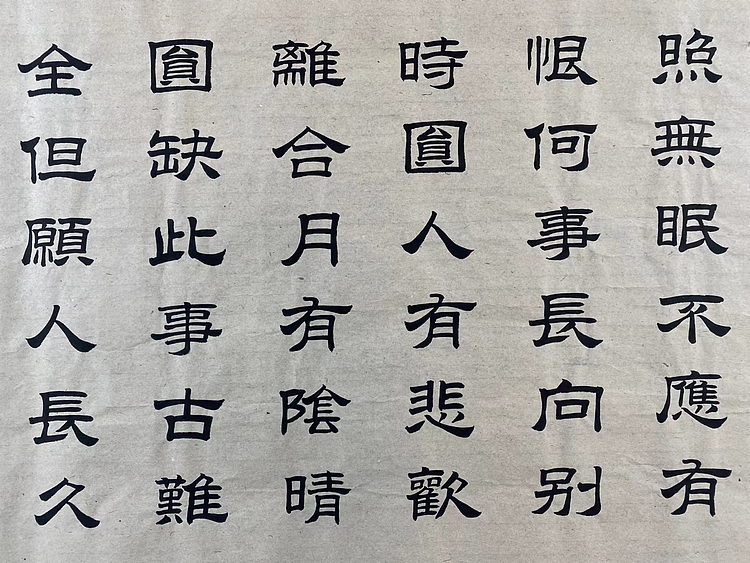 照無眠不應有
恨何事長向别
時圓人有悲歡
離合月有陰晴
圓缺此事古難
全但願人長久